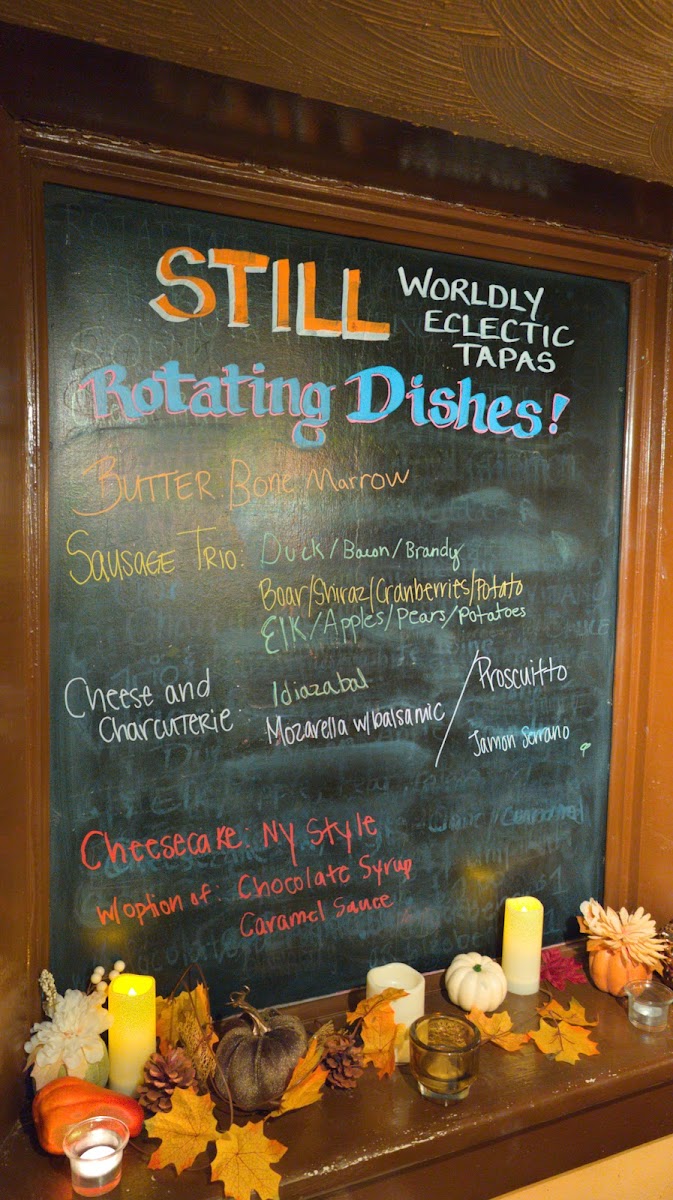 STILL WORLDLY
ECLECTIC
TAPAS
Rotating Dishes!
BUTTER Bone Marrow
SAUSAGE TRIO: Duck/Bacon/Brandy
Boar/Shiraz/Cranberries/Potato
Elk/Apples/Pears/Potatoes
Cheese and
CHARCUTERIE: Idiazabal
Mozarella w/balsamic / Proscuitto
Jamon Serrano
Cheesecake: NY Style
w/option of: Chocolate Syrup
Caramel Sauce